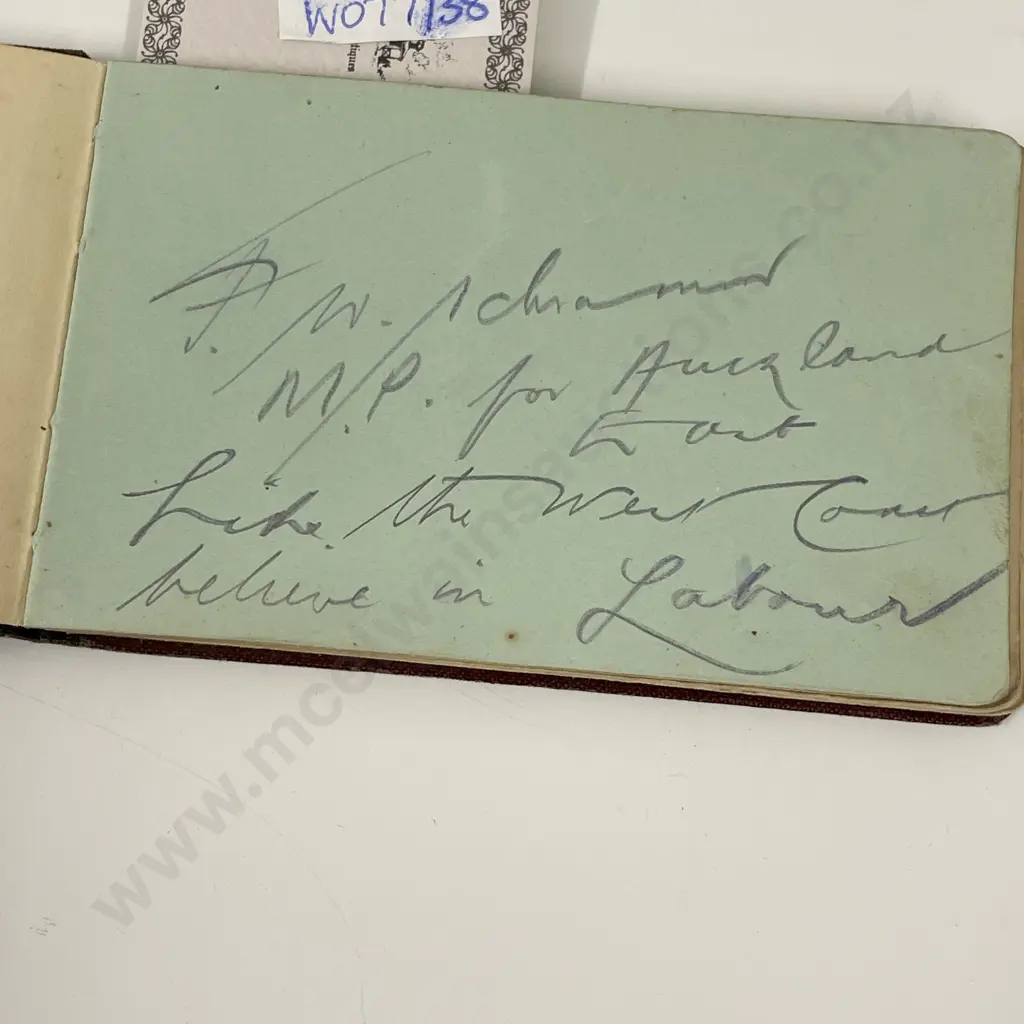 WOT 7/38
tiques
F. W. Schramm
M.P. for Auckland.
East
Like the West Coast
believe in Labour
www.mcalwainsauctions.co.nz